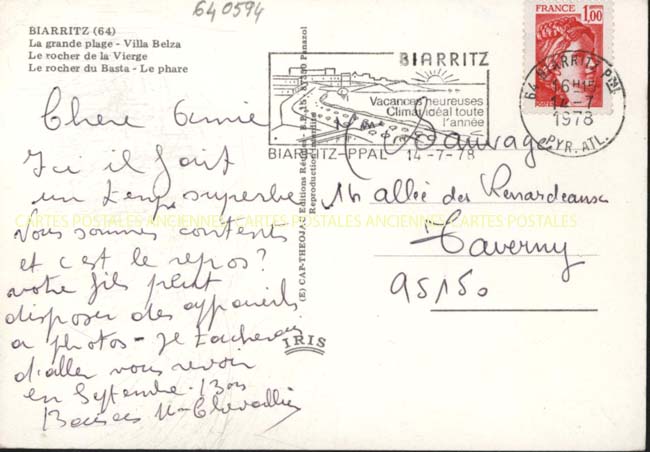 640594
BIARRITZ (64)
La grande plage - Villa Belza
Le rocher de la Vierge
Le rocher du Basta - Le phare
Chere Amie
Ici il fait
un temps superbe
Vous sommes contents
et c'est le repos?
votre fils peut
disposer des appareils
a photos - Je tacherai
d'aller vous revoir
en Septembre. Bons
Baisers
(E) CAP-THEOJAC Editions
Panazol
Reproduction interdite
IRIS
BIARRITZ
Vacances heureuses
Climat idéal toute
l'année
BIARRITZ-PPAL 14-7-78
FRANCE
1,00
POSTES
64 BIARRITZ PPAL
16H15
14-7
1978
PYR. ATL.
Sauvage
16 allée des Renardeaux
Taverny
95150
CARTES POSTALES ANCIENNES CARTES POSTALES ANCIENNES CARTES POSTALES